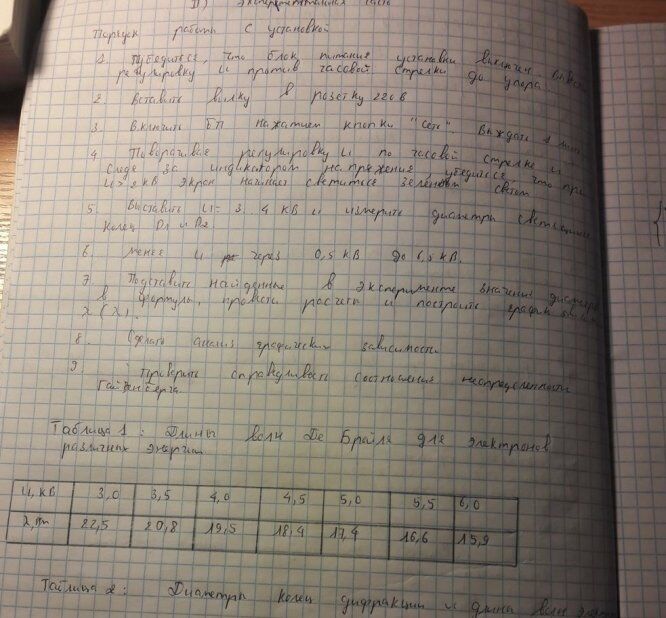 II) экспериментальная часть
Порядок работы с установкой
1. Убедиться, что блок питания установки выключен,
регулировку U против часовой стрелки до упора
2. Вставить вилку в розетку 220 В
3. Включить БП нажатием кнопки "Сеть". Выждать 1 мин
4. Поворачивая регулировку U по часовой стрелке и
следя за индикатором напряжения, убедиться, что при
U > 2 кВ экран начинает светиться зеленым светом
5. Выставить U = 3, 4 кВ и измерить диаметры светящихся
колец D1 и D2.
6. меняя U через 0,5 кВ до 6,5 кВ.
7. Подставить найденные в эксперименте значения диаметров
в формулы, провести расчеты и построить график
8. Сделать анализ графических зависимости
9. Проверить справедливость соотношения неопределенности
Гайзенберга.
Таблица 1: Длины волн Де Бройля для электронов
различных энергии
U, кВ 3,0 3,5 4,0 4,5 5,0 5,5 6,0
λ, пт 22,5 20,8 19,5 18,4 17,4 16,6 15,9
Таблица 2: Диаметры колец дифракции и длина волн